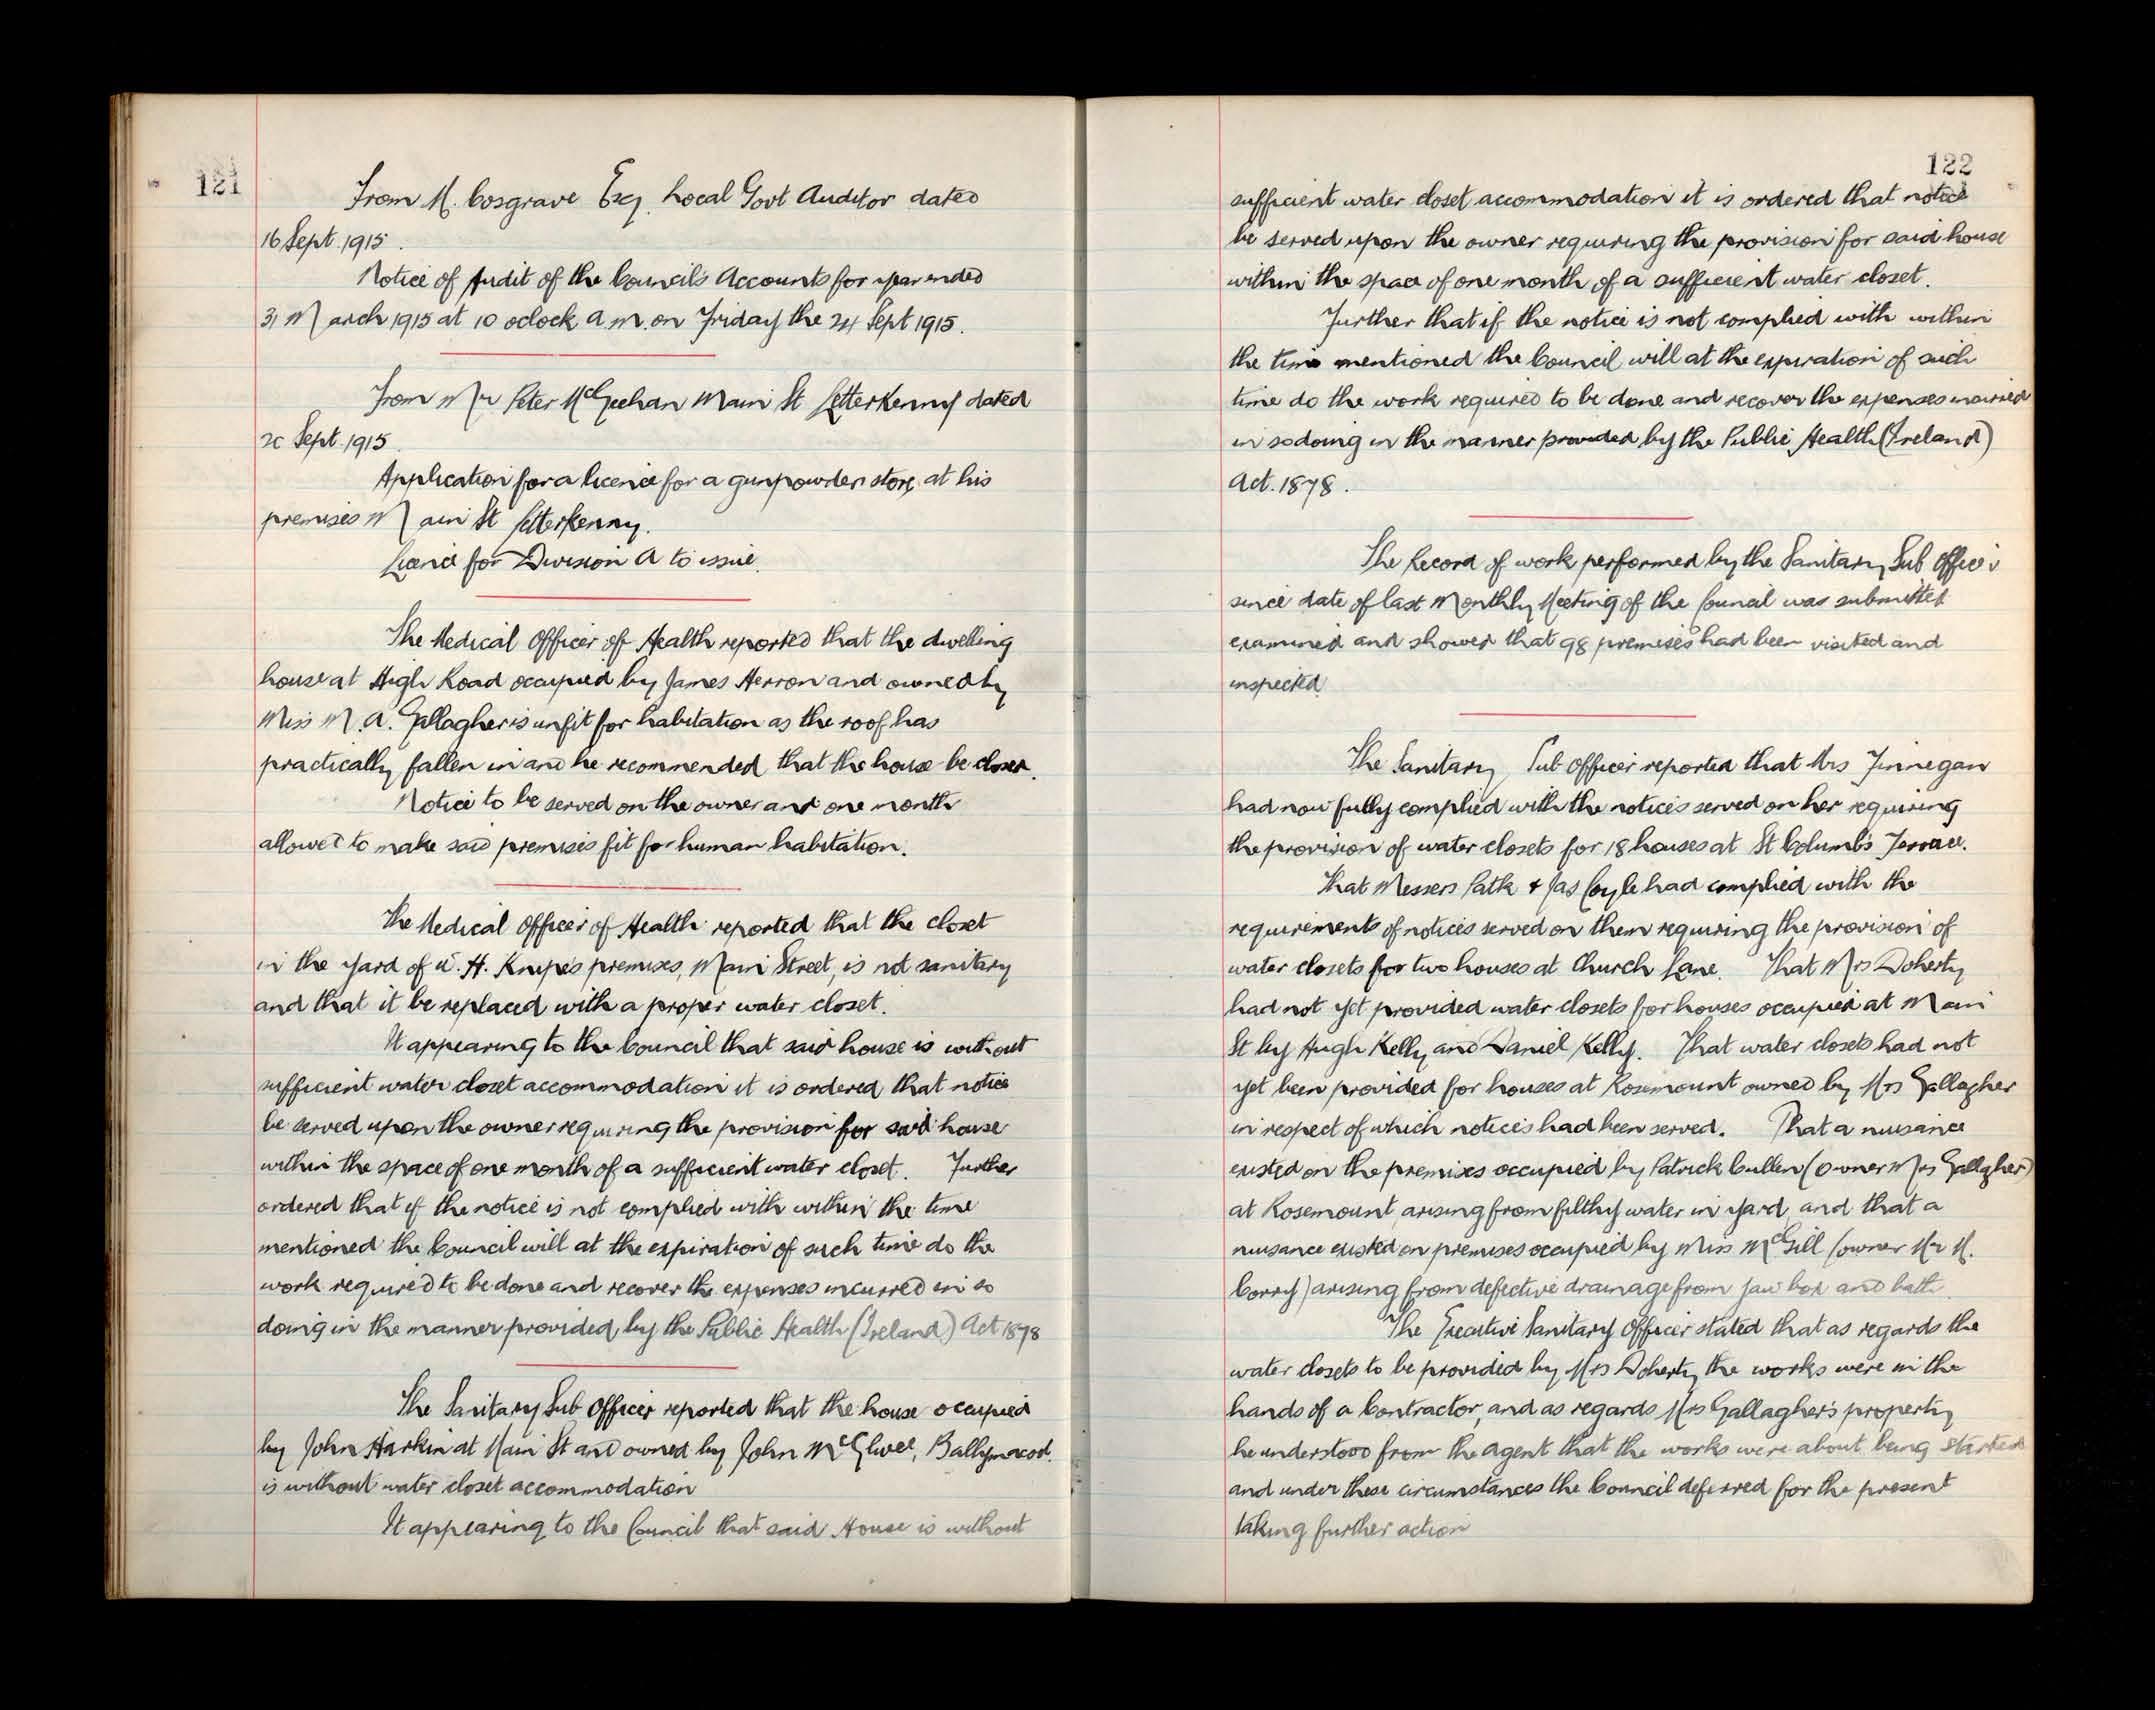 121
From M. Cosgrave Esq. Local Govt Auditor dated
16 Sept. 1915.
Notice of Audit of the Council's Accounts for year ended
31 March 1915 at 10 oclock a.m. on Friday the 24 Sept 1915.
From Mr Peter McGeehan Main St Letterkenny dated
20 Sept. 1915
Application for a licence for a gunpowder store at his
premises Main St Letterkenny.
Licence for Division A to issue.
The Medical Officer of Health reported that the dwelling
house at High Road occupied by James Herron and owned by
Miss M.A. Gallagher is unfit for habitation as the roof has
practically fallen in and he recommended that the house be closed.
Notice to be served on the owner and one month
allowed to make said premises fit for human habitation.
The Medical Officer of Health reported that the closet
in the yard of W. H. Knipe's premises, Main Street, is not sanitary
and that it be replaced with a proper water closet.
It appearing to the Council that said house is without
sufficient water closet accommodation it is ordered that notice
be served upon the owner requiring the provision for said house
within the space of one month of a sufficient water closet. Further
ordered that if the notice is not complied with within the time
mentioned the Council will at the expiration of such time do the
work required to be done and recover the expenses incurred in so
doing in the manner provided by the Public Health (Ireland) Act 1878
The Sanitary Sub Officer reported that the house occupied
by John Harkin at Main St and owned by John McGlwee, Ballymacod.
is without water closet accommodation
It appearing to the Council that said House is without
122
sufficient water closet accommodation it is ordered that notice
be served upon the owner requiring the provision for said house
within the space of one month of a sufficient water closet.
Further that if the notice is not complied with within
the time mentioned the Council will at the expiration of such
time do the work required to be done and recover the expenses incurred
in so doing in the manner provided by the Public Health (Ireland)
Act. 1878.
The Record of work performed by the Sanitary Sub Officer
since date of last Monthly Meeting of the Council was submitted
examined and showed that 98 premises had been visited and
inspected
The Sanitary Sub Officer reported that Mrs Finnegan
had now fully complied with the notices served on her requiring
the provision of water closets for 18 houses at St Columb's Terrace.
That Messers Patk & Jas Coyle had complied with the
requirements of notices served on them requiring the provision of
water closets for two houses at Church Lane. That Mrs Doherty
had not yet provided water closets for houses occupied at Main
St by Hugh Kelly and Daniel Kelly. That water closets had not
yet been provided for houses at Rosemount owned by Mrs Gallagher
in respect of which notices had been served. That a nuisance
existed on the premises occupied by Patrick Cullen (owner Mrs Gallagher)
at Rosemount arising from filthy water in yard, and that a
nuisance existed on premises occupied by Miss McGill (owner Mr M.
Corry) arising from defective drainage from jaw box and bath.
The Executive Sanitary Officer stated that as regards the
water closets to be provided by Mrs Doherty the works were in the
hands of a Contractor, and as regards Mrs Gallagher's property
he understood from the agent that the works were about being started
and under these circumstances the Council deferred for the present
taking further action